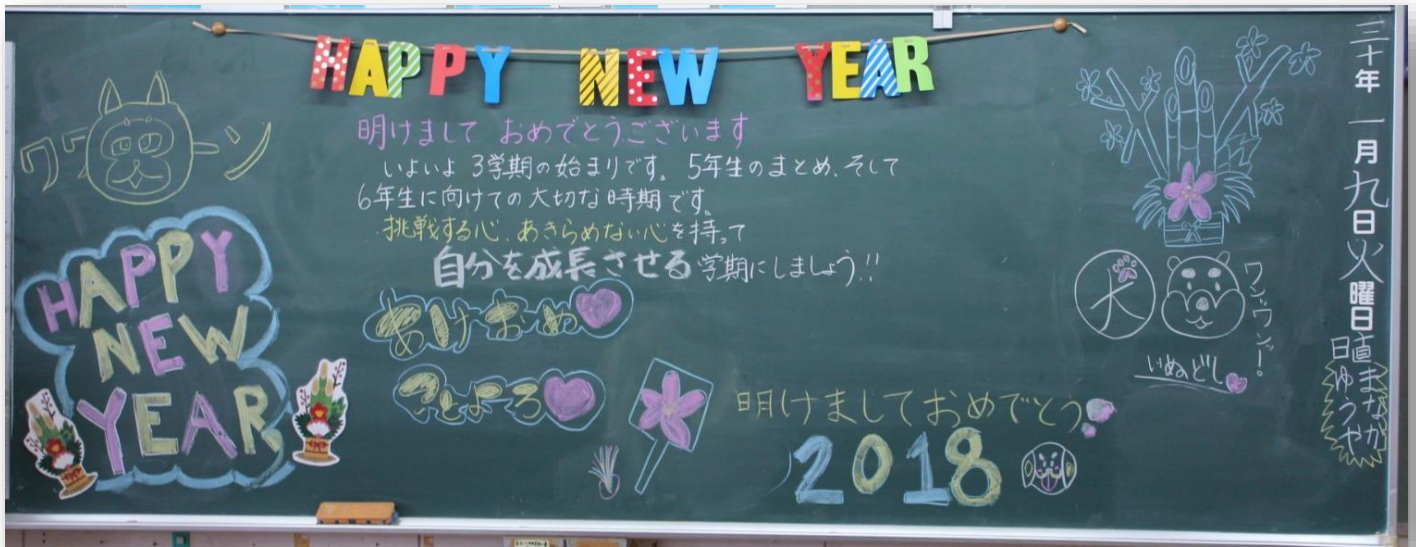 HAPPY NEW YEAR
ワワーン
HAPPY
NEW
YEAR
明けまして おめでとうございます
いよいよ 3学期の始まりです。5年生のまとめ、そして
6年生に向けての大切な時期です。
挑戦する心、あきらめない心を持って
自分を成長させる学期にしましょう!!
あけおめ
ことよろ
明けましておめでとう
2018
犬
ワンワン!
いぬどし
三十年 一月九日火曜日
日直
まなか
ゆうや